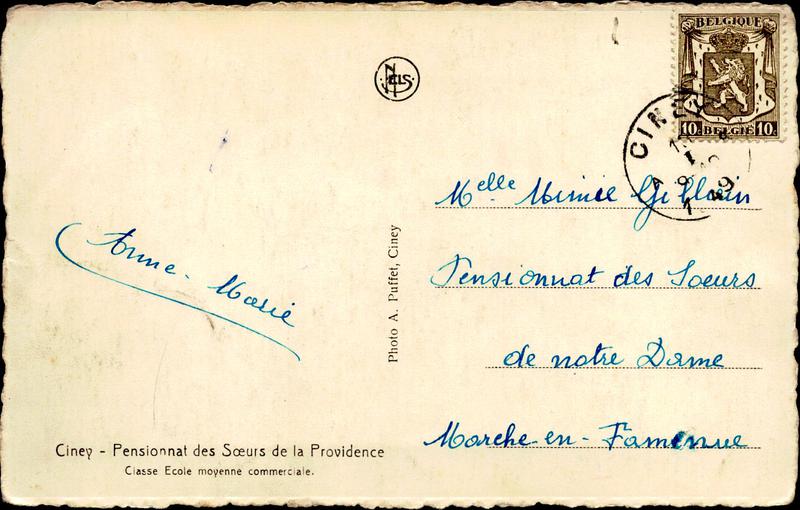 NELS
BELGIQUE
10c BELGIË 10c
CINEY
A
1949
Melle Mimie Giblain
Pensionnat des Soeurs
de notre Dame
Marche-en-Famenne
Anne-Marie
Photo A. Puffet, Ciney
Ciney - Pensionnat des Sœurs de la Providence
Classe Ecole moyenne commerciale.